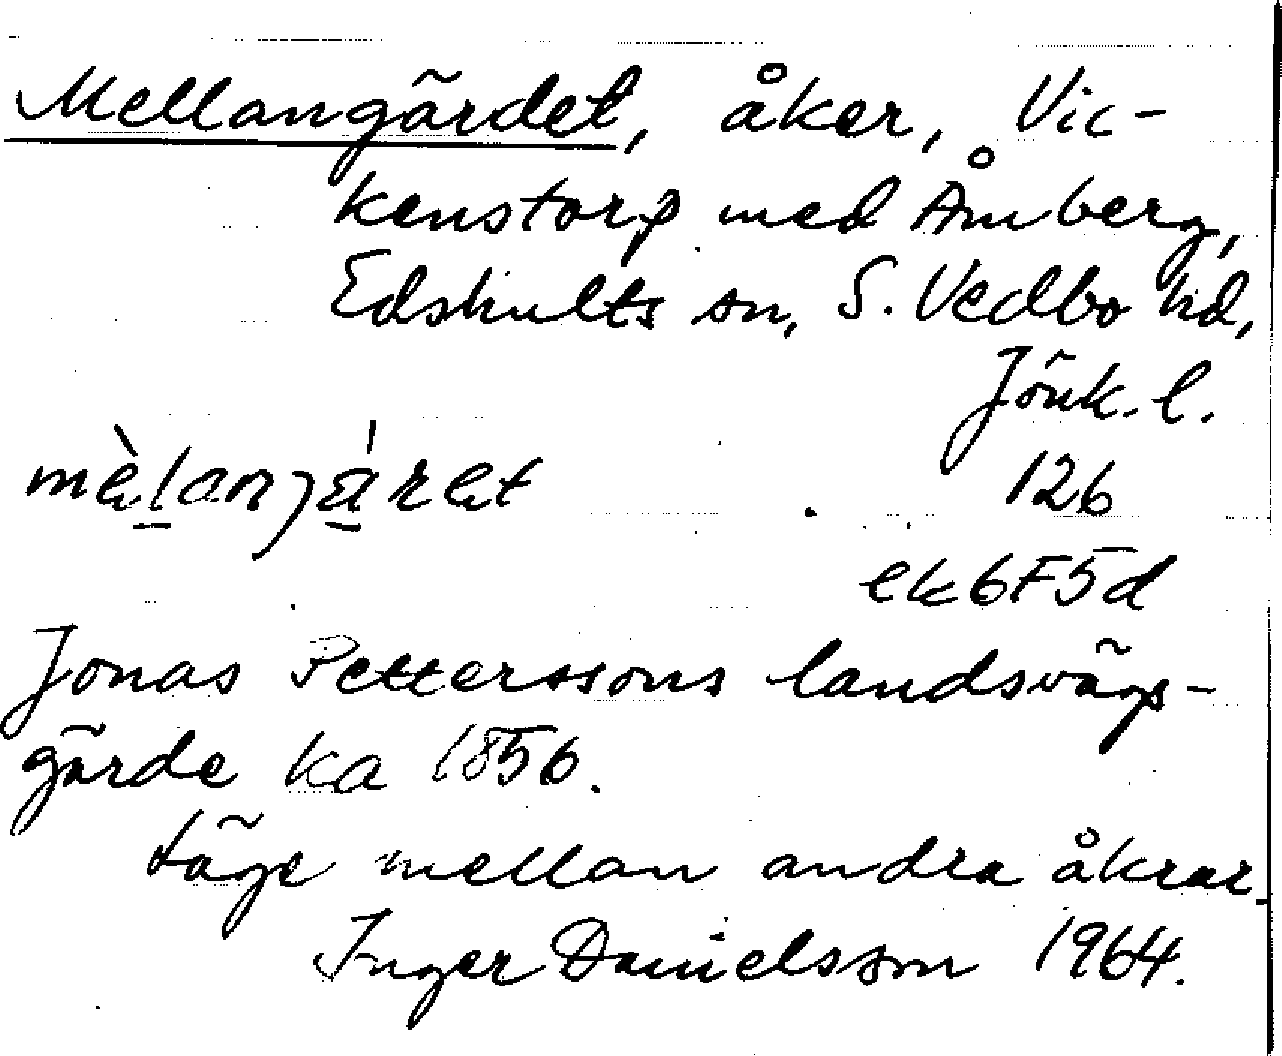 Mellangärdet, åker, Vic-
kenstorp med Åmberg,
Edshults sn, S. Vedbo hd,
Jönk. l.
mèlanjä́ret 126
ek6F5d
Jonas Petterssons landsvägs-
gärde ka 1856.
Läge mellan andra åkrar.
Inger Danielsson 1964.